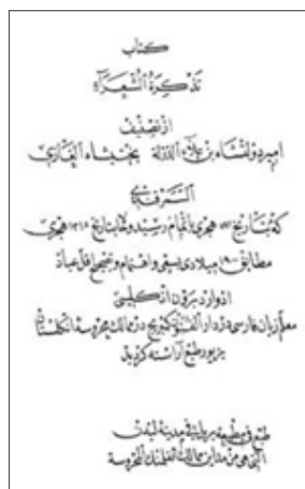 كتاب
تذكرة الشعراء
از تصنيف
امير دولتشاه بن علاء الدولة بختيشاه الغازي
السمرقندي
كه بتاريخ هجري باتمام رسيد وحالا بتاريخ ١٣١٨ هجري
مطابق ١٩٠٠ ميلادي بسعى واهتمام وتصحيح اقل عباد
ادوارد برون انكليسى
معلم زبان فارسى در دار الفنون كمبريج در ممالك محروسة انكلستان
بزيور طبع آراسته گرديد
طبع في مطبعة بريل في مدينة ليدن
التي هي من مدائن ممالك الفلمنك المحروسة